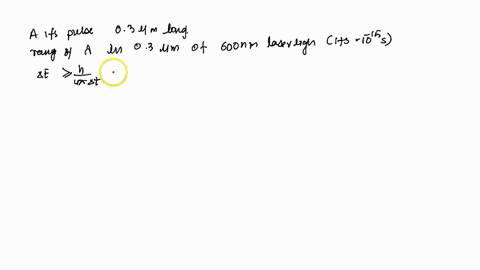 A 1fs pulse 0.3 μm long
rang of A is 0.3 μm of 600nm laser ligh (1fs = 10^-15 s)
ΔE ≥ h/4π Δt